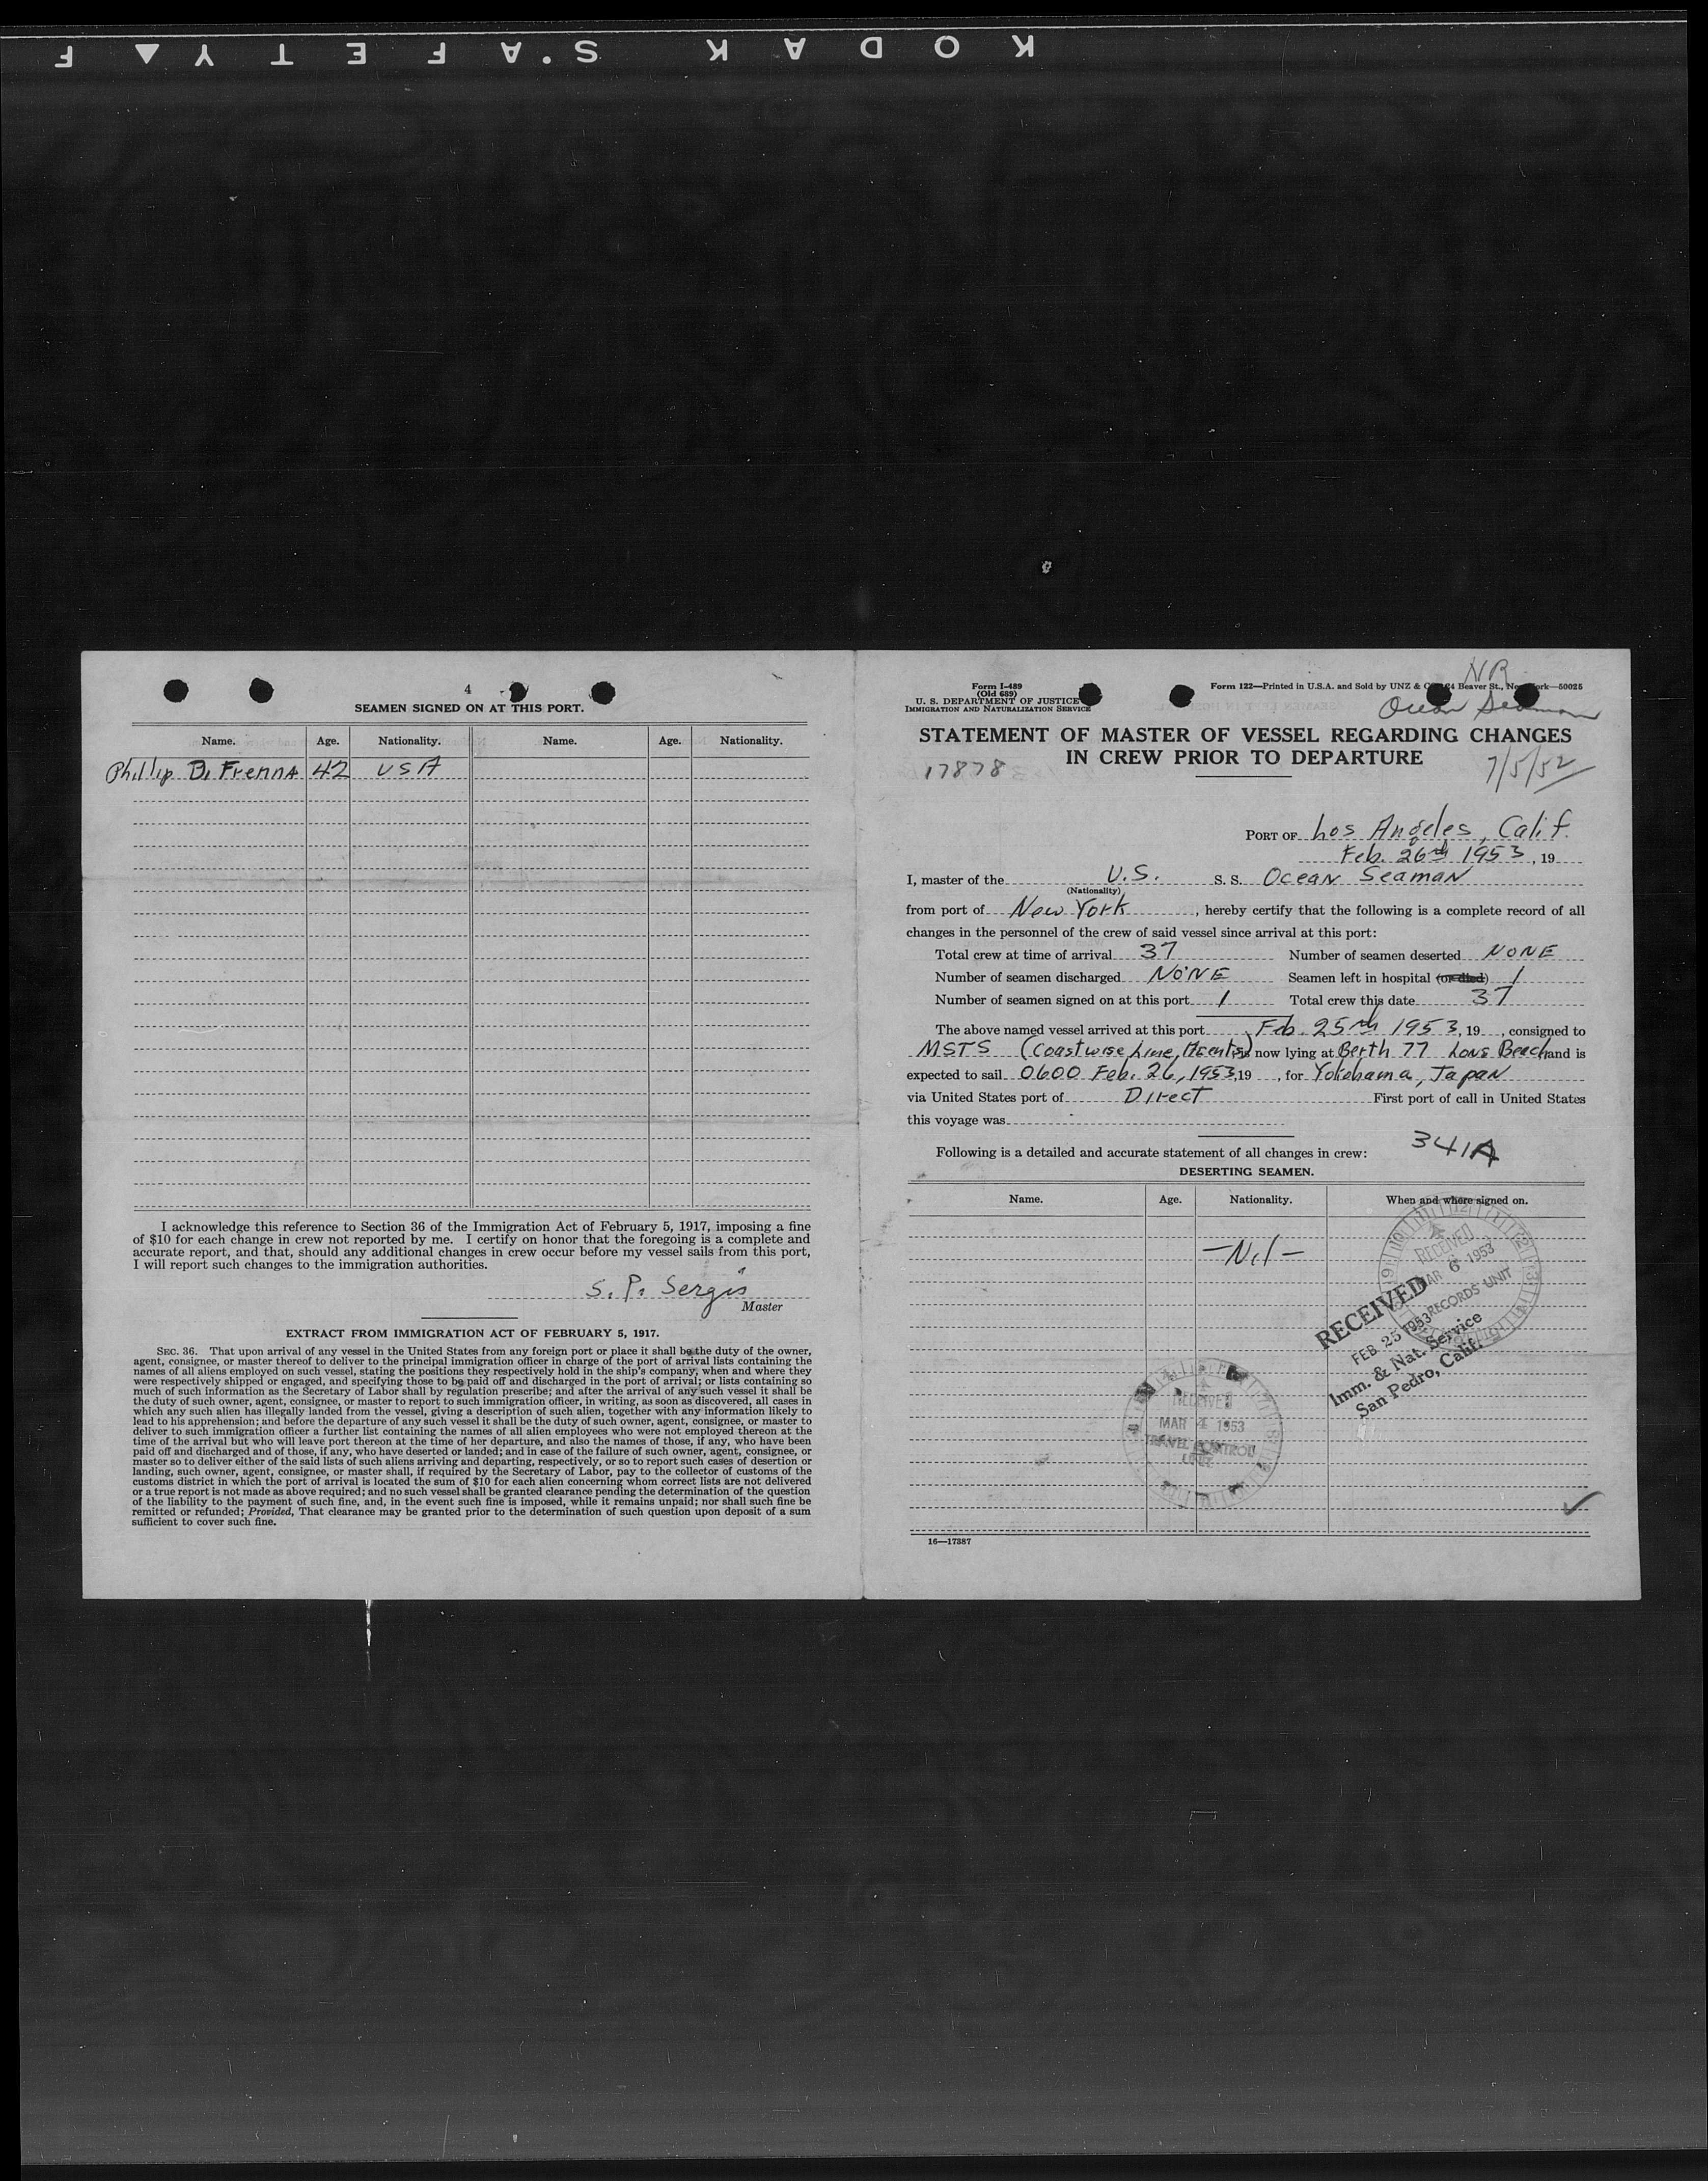 KODAK S.AFETY▲F
4
SEAMEN SIGNED ON AT THIS PORT.
Name. Age. Nationality. Name. Age. Nationality.
Phillip Di Frenna 42 USA
I acknowledge this reference to Section 36 of the Immigration Act of February 5, 1917, imposing a fine
of $10 for each change in crew not reported by me. I certify on honor that the foregoing is a complete and
accurate report, and that, should any additional changes in crew occur before my vessel sails from this port,
I will report such changes to the immigration authorities.
S. P. Sergis
Master
EXTRACT FROM IMMIGRATION ACT OF FEBRUARY 5, 1917.
SEC. 36. That upon arrival of any vessel in the United States from any foreign port or place it shall be the duty of the owner,
agent, consignee, or master thereof to deliver to the principal immigration officer in charge of the port of arrival lists containing the
names of all aliens employed on such vessel, stating the positions they respectively hold in the ship's company, when and where they
were respectively shipped or engaged, and specifying those to be paid off and discharged in the port of arrival; or lists containing so
much of such information as the Secretary of Labor shall by regulation prescribe; and after the arrival of any such vessel it shall be
the duty of such owner, agent, consignee, or master to report to such immigration officer, in writing, as soon as discovered, all cases in
which any such alien has illegally landed from the vessel, giving a description of such alien, together with any information likely to
lead to his apprehension; and before the departure of any such vessel it shall be the duty of such owner, agent, consignee, or master to
deliver to such immigration officer a further list containing the names of all alien employees who were not employed thereon at the
time of the arrival but who will leave port thereon at the time of her departure, and also the names of those, if any, who have been
paid off and discharged and of those, if any, who have deserted or landed; and in case of the failure of such owner, agent, consignee, or
master so to deliver either of the said lists of such aliens arriving and departing, respectively, or so to report such cases of desertion or
landing, such owner, agent, consignee, or master shall, if required by the Secretary of Labor, pay to the collector of customs of the
customs district in which the port of arrival is located the sum of $10 for each alien concerning whom correct lists are not delivered
or a true report is not made as above required; and no such vessel shall be granted clearance pending the determination of the question
of the liability to the payment of such fine, and, in the event such fine is imposed, while it remains unpaid; nor shall such fine be
remitted or refunded; Provided, That clearance may be granted prior to the determination of such question upon deposit of a sum
sufficient to cover such fine.
Form I-489
(Old 689)
U. S. DEPARTMENT OF JUSTICE
IMMIGRATION AND NATURALIZATION SERVICE
NR
Form 122—Printed in U.S.A. and Sold by UNZ & Beaver St., New York—50025
Ocean Seaman
STATEMENT OF MASTER OF VESSEL REGARDING CHANGES
IN CREW PRIOR TO DEPARTURE
17878
7/5/52
PORT OF Los Angeles, Calif.
Feb. 26th 1953, 19
I, master of the U.S. S. S. Ocean Seaman
(Nationality)
from port of New York, hereby certify that the following is a complete record of all
changes in the personnel of the crew of said vessel since arrival at this port:
Total crew at time of arrival 37 Number of seamen deserted NONE
Number of seamen discharged NONE Seamen left in hospital (or died) 1
Number of seamen signed on at this port 1 Total crew this date 37
The above named vessel arrived at this port Feb. 25th 1953, 19, consigned to
MSTS (Coastwise Line, Agents) is now lying at Berth 77 Long Beach and is
expected to sail 0600 Feb. 26, 1953, 19, for Yokohama, Japan
via United States port of Direct First port of call in United States
this voyage was
341A
Following is a detailed and accurate statement of all changes in crew:
DESERTING SEAMEN.
Name. Age. Nationality. When and where signed on.
—Nil—
RECEIVED
MAR 6 1953
RECORDS UNIT
RECEIVED
FEB 25 1953
Imm. & Nat. Service
San Pedro, Calif.
RECEIVED
MAR 4 1953
TRAVEL CONTROL
UNIT
16—17387